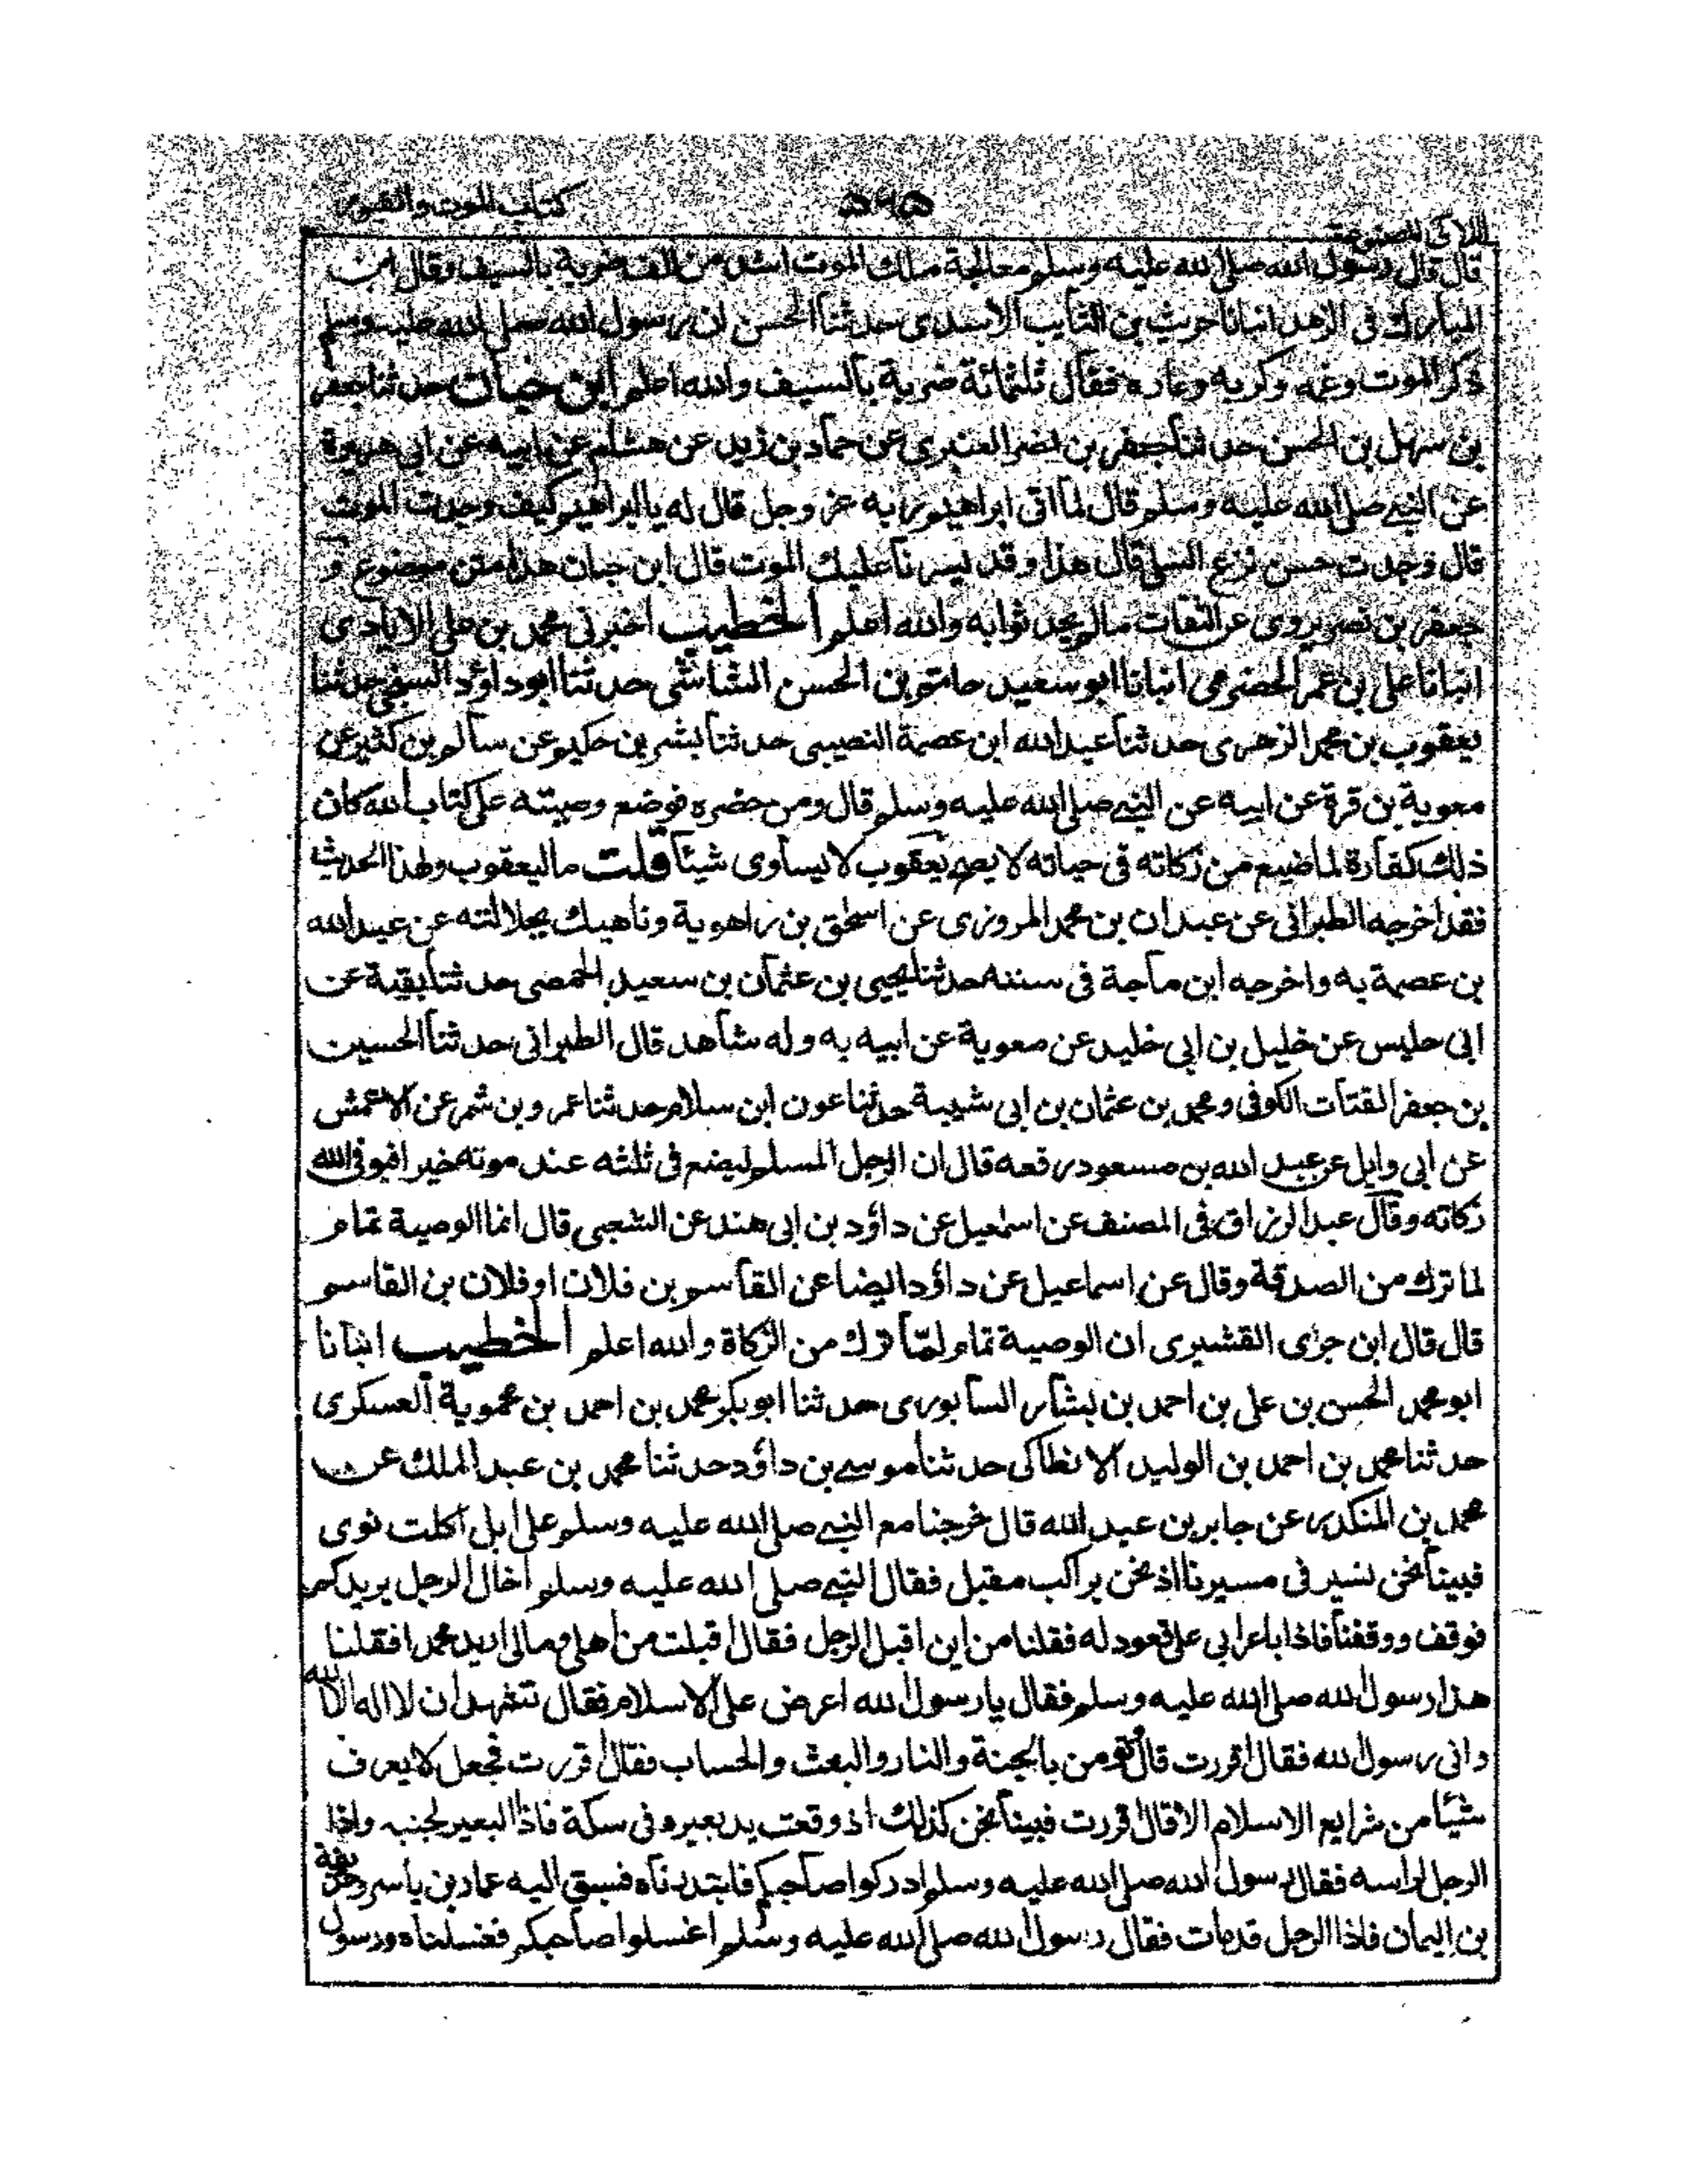 كتاب الموت والقبور
اللآلي المصنوعة
قال قال رسول الله صلى الله عليه وسلم معالجة ملك الموت اشد من الف ضربة بالسيف وقال ابن
المبارك فى الزهد انبانا حريث بن السايب الاسدى حدثنا الحسن ان رسول الله صلى الله عليه وسلم
ذكر الموت وغمه وكربه فقال ثلثمائة ضربة بالسيف والله اعلم ابن حبان حدثنا جعفر
بن سهل بن الحسن حدثنا جعفر بن نصر العنبرى عن حماد بن زيد عن هشام عن ابيه عن ابى هريرة
عن النبى صلى الله عليه وسلم قال لما اتى ابراهيم ربه عز وجل قال له يا ابراهيم كيف وجدت الموت
قال وجدت حسن نزع السلى قال هذا وقد يسرنا عليك الموت قال ابن حبان هذا متن موضوع و
جعفر بن نصر يروى عن الثقات ما لم يحدثوا به والله اعلم الخطيب اخبرنى محمد بن على الايادى
انبانا على بن عمر الحضرمى انبانا ابو سعيد حاتم بن الحسن الشاشى حدثنا ابو داؤد السنجى حدثنا
يعقوب بن محمد الزهرى حدثنا عبد الله ابن عصمة النصيبى حدثنا بشر بن حكيم عن سالم بن كثير عن
معوية بن قرة عن ابيه عن النبى صلى الله عليه وسلم قال ومن حضره فوضع وصيته على كتاب الله كان
ذلك كفارة لما ضيع من زكاته فى حياته لا يصح يعقوب لا يساوى شيئا قلت ما ليعقوب ولهذا الحديث
فقد اخرجه الطبرانى عن عبدان بن محمد المروزى عن اسحق بن راهوية وناهيك بجلالته عن عبد الله
بن عصمة به واخرجه ابن ماجة فى سننه حدثنا يحيى بن عثمان بن سعيد الحمصى حدثنا بقية عن
ابى حليس عن خليل بن ابى خليد عن معوية عن ابيه به وله شاهد قال الطبرانى حدثنا الحسين
بن جعفر القتات الكوفى ومحمد بن عثمان بن ابى شيبة حدثنا عون ابن سلام حدثنا عمرو بن شمر عن الاعمش
عن ابى وايل عن عبد الله بن مسعود رفعه قال ان الرجل المسلم ليضع فى ثلثه عند موته خيرا فيوفى الله
زكاته وقال عبد الرزاق فى المصنف عن اسمعيل عن داؤد بن ابى هند عن الشعبى قال انما الوصية تمام
لما ترك من الصدقة وقال عن اسماعيل عن داؤد ايضا عن القاسم بن فلان او فلان بن القاسم
قال قال ابن جزى القشيرى ان الوصية تمام لما ترك من الزكاة والله اعلم الخطيب انبانا
ابو محمد الحسن بن على بن احمد بن بشار السابورى حدثنا ابو بكر محمد بن احمد بن محموية العسكرى
حدثنا محمد بن احمد بن الوليد الانطاكى حدثنا موسى بن داؤد حدثنا محمد بن عبد الملك عن
محمد بن المنكدر عن جابر بن عبد الله قال خرجنا مع النبى صلى الله عليه وسلم على ابل اكلت نوى
فبينا نحن نسير فى مسيرنا اذ نحن براكب مقبل فقال النبى صلى الله عليه وسلم اخال الرجل يريدكم
فوقف ووقفنا فاذا باعرابى على قعود له فقلنا من اين اقبل الرجل فقال اقبلت من اهلى ومالى اريد محمدا فقلنا
هذا رسول الله صلى الله عليه وسلم فقال يا رسول الله اعرض على الاسلام فقال تشهد ان لا اله الا الله
وانى رسول الله فقال اقررت قال تؤمن بالجنة والنار والبعث والحساب فقال اقررت فجعل لا يعرف
شيئا من شرايع الاسلام الا قال اقررت فبينا نحن كذلك اذ وقعت يد بعيره فى سكة فاذا البعير لجنبه واذا
الرجل لراسه فقال رسول الله صلى الله عليه وسلم ادركوا صاحبكم فابتدرناه فسبق اليه عمار بن ياسر وحذيفة
بن اليمان فاذا الرجل قد مات فقال رسول الله صلى الله عليه وسلم اغسلوا صاحبكم فغسلناه ورسول